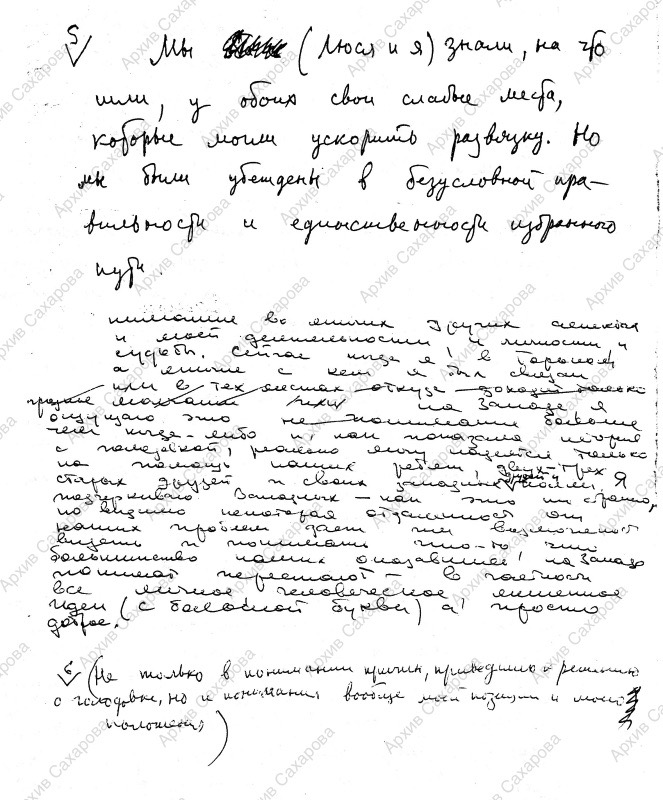 5 Мы (Люся и я) знали, на что
шли, у обоих свои слабые места,
которые могли ускорить развязку. Но
мы были убеждены в безусловной пра-
вильности и единственности избранного
пути.
нимание во многих других аспектах
и моей деятельности и личности и
судьбы. Сейчас когда я в Горьком
а многие с кем я был связан
или в тех местах откуда доходит только
на Западе я
ощущаю это не понимание больше
чем когда-либо и, как показала история
с голодовкой, реально могу надеяться только
на помощь наших ребят, двух-трех
старых друзей и своих западных коллег. Я
подчеркиваю Западных – как это ни странно,
но видимо некоторая отдаленность от
наших проблем дает им возможность
видеть и понимать что-то что
большинство наших оказавшись на Западе
понимать перестают – в частности
все личное человеческое лишенное
идеи (с большой буквы) а просто
доброе.
5 (Не только в понимании причин, приведших к решению
о голодовке, но и понимания вообще моей позиции и моего
положения)
Архив Сахарова